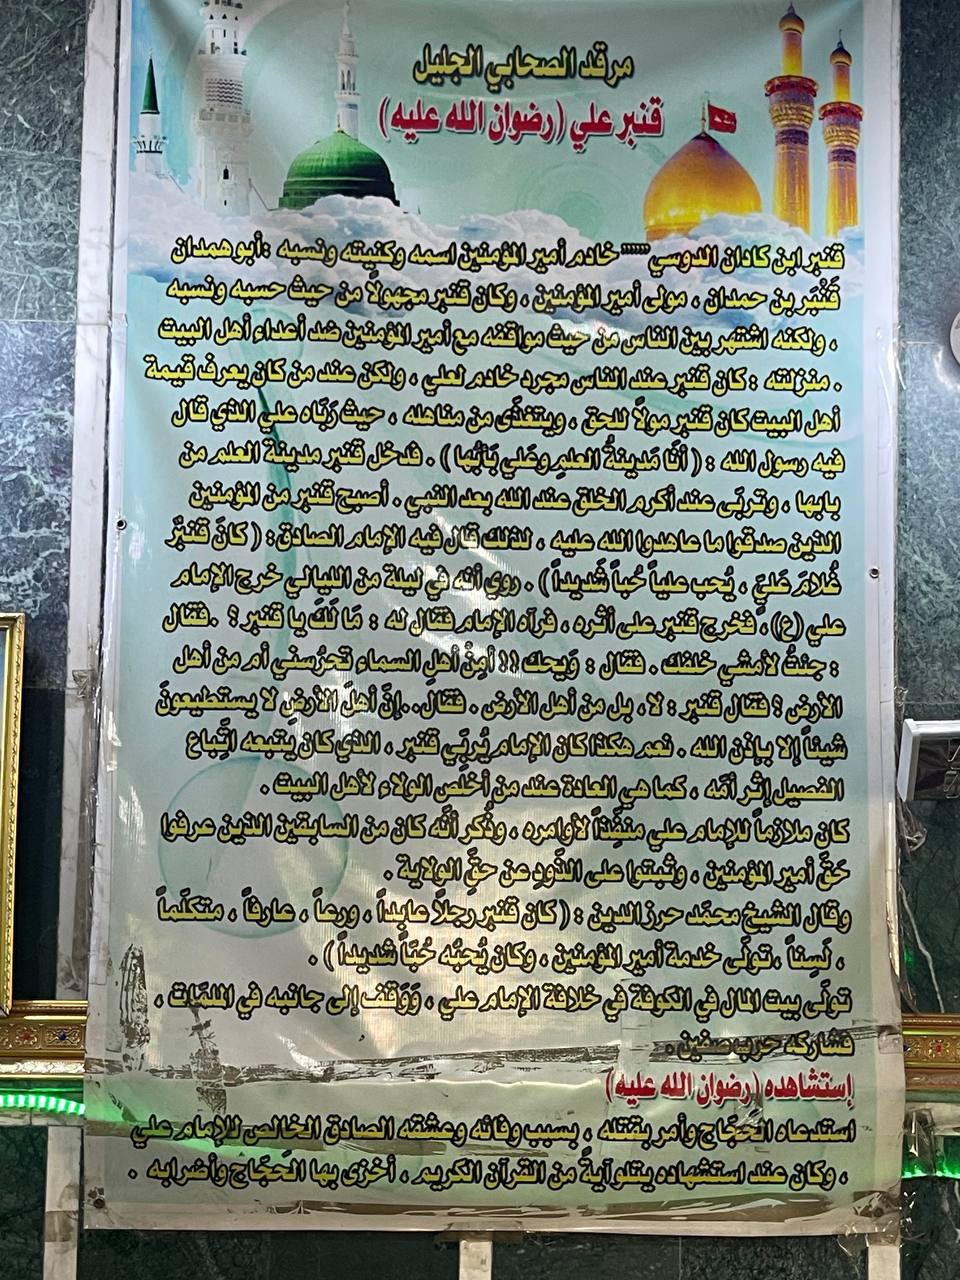 مرقد الصحابي الجليل
قنبر علي (رضوان الله عليه)
قنبر ابن كادان الدوسي """ خادم أمير المؤمنين اسمه وكنيته ونسبه :أبو همدان
قَنْبَر بن حمدان ، مولى أمير المؤمنين ، وكان قنبر مجهولاً من حيث حسبه ونسبه
، ولكنه اشتهر بين الناس من حيث مواقفه مع أمير المؤمنين ضد أعداء أهل البيت
. منزلته : كان قنبر عند الناس مجرد خادم لعلي ، ولكن عند من كان يعرف قيمة
أهل البيت كان قنبر مولاً للحق ، ويتغذّى من مناهله ، حيث رَبّاه علي الذي قال
فيه رسول الله : ( أنَا مَدينةُ العلمِ وعَلي بَابُها ) . فدخل قنبر مدينة العلم من
بابها ، وتربّى عند أكرم الخلق عند الله بعد النبي . أصبح قنبر من المؤمنين
الذين صدقوا ما عاهدوا الله عليه ، لذلك قال فيه الإمام الصادق : ( كانَ قَنبرُ
غُلامَ عَليّ ، يُحب علياً حُباً شَديداً ) . روي أنه في ليلة من الليالي خرج الإمام
علي (ع) ، فخرج قنبر على أثره ، فرآه الإمام فقال له : مَا لَكَ يا قنبر ؟ .فقال
: جئتُ لأمشي خلفك . فقال : وَيحك !! أمِنْ أهلِ السماءِ تحرُسني أم من أهل
الأرض ؟ فقال قنبر : لا، بل من أهل الأرض . فقال..إنَّ أهلَ الأرضِ لا يستطيعونَ
شيئاً إلا بإذن الله . نعم هكذا كان الإمام يُربّي قنبر ، الذي كان يتبعه اتّباع
الفصيل إثر أمّه ، كما هي العادة عند من أخلص الولاء لأهل البيت .
كان ملازماً للإمام علي منفِّذاً لأوامره ، وذُكر أنَّه كان من السابقين الذين عرفوا
حَقَّ أمير المؤمنين ، وثبتوا على الذَودِ عن حقِّ الولاية .
وقال الشيخ محمّد حرز الدين : ( كان قنبر رجلاً عابداً ، ورعاً ، عارفاً ، متكلّماً
، لَسِناً ، تولّى خدمة أمير المؤمنين ، وكان يُحبّه حُبّاً شديداً ) .
تولّى بيت المال في الكوفة في خلافة الإمام علي ، وَوَقف إلى جانبه في الملمّات ،
فشاركه حرب صفين .
إستشاهده (رضوان الله عليه)
استدعاه الحَجّاج وأمر بقتله ، بسبب وفائه وعشقه الصادق الخالص للإمام علي
، وكان عند استشهاده يتلو آيةً من القرآن الكريم ، أخزى بها الحَجّاج وأضرابه .